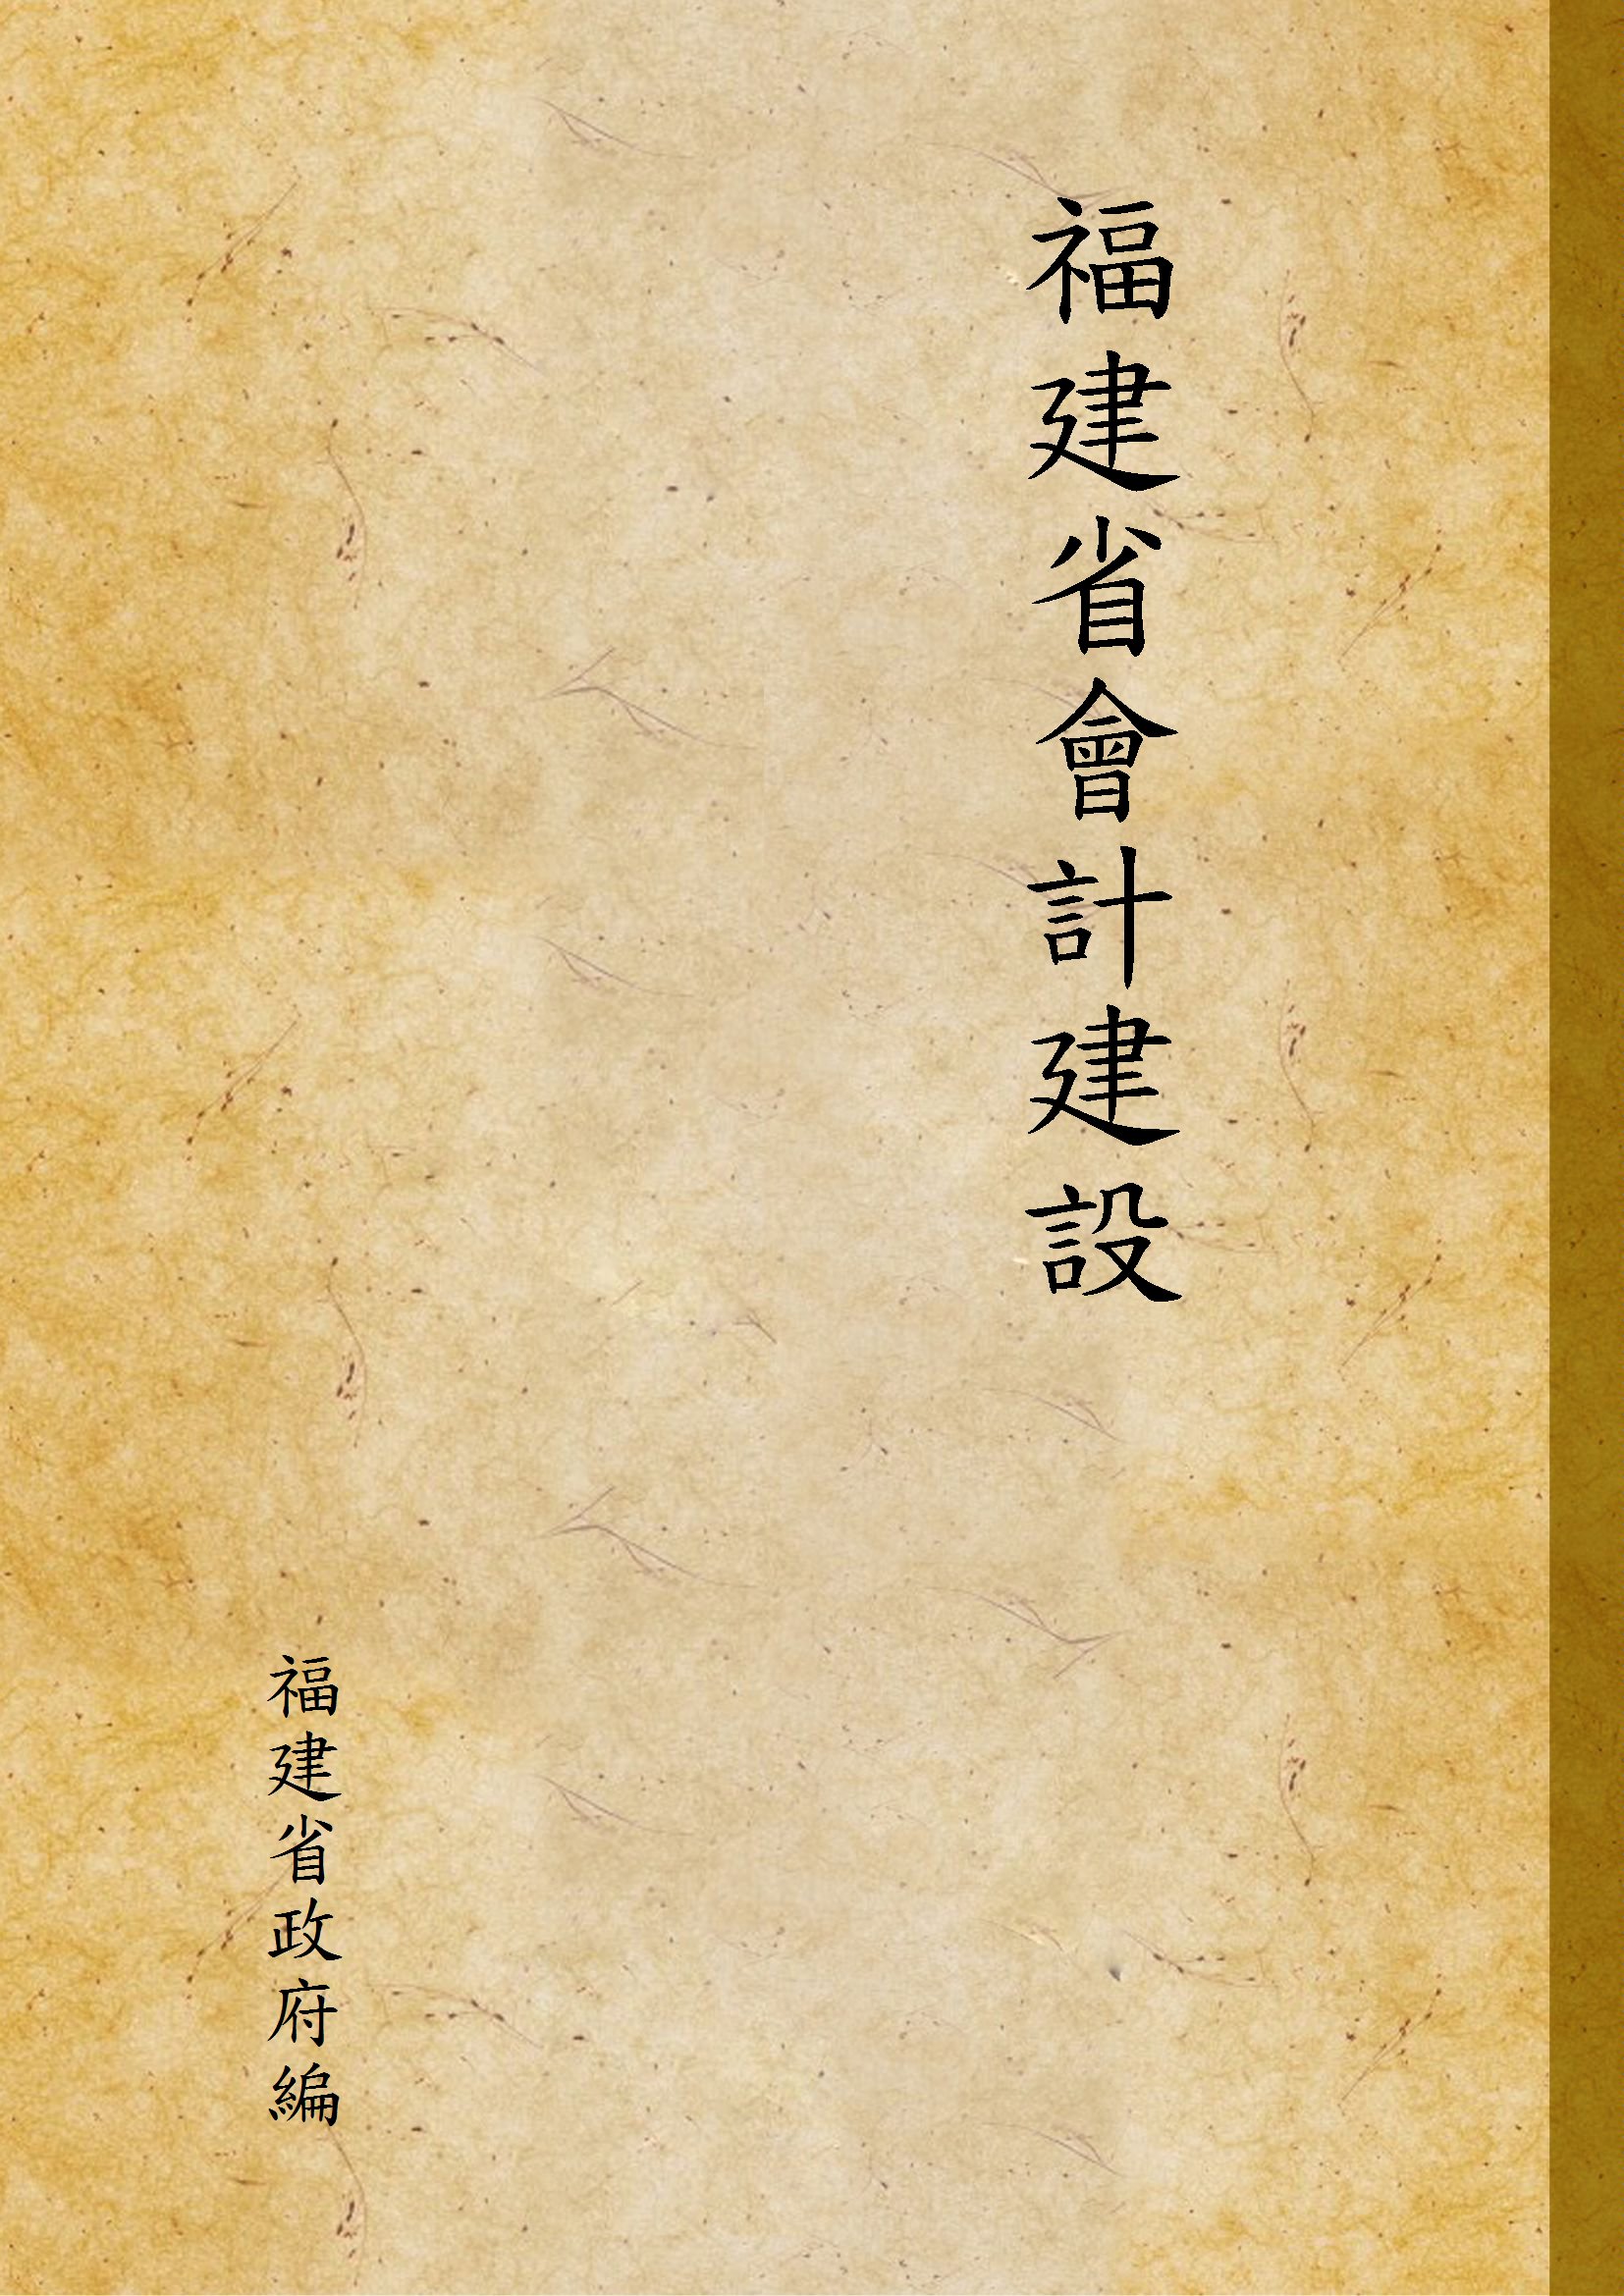 福建省會計建設
福建省政府編